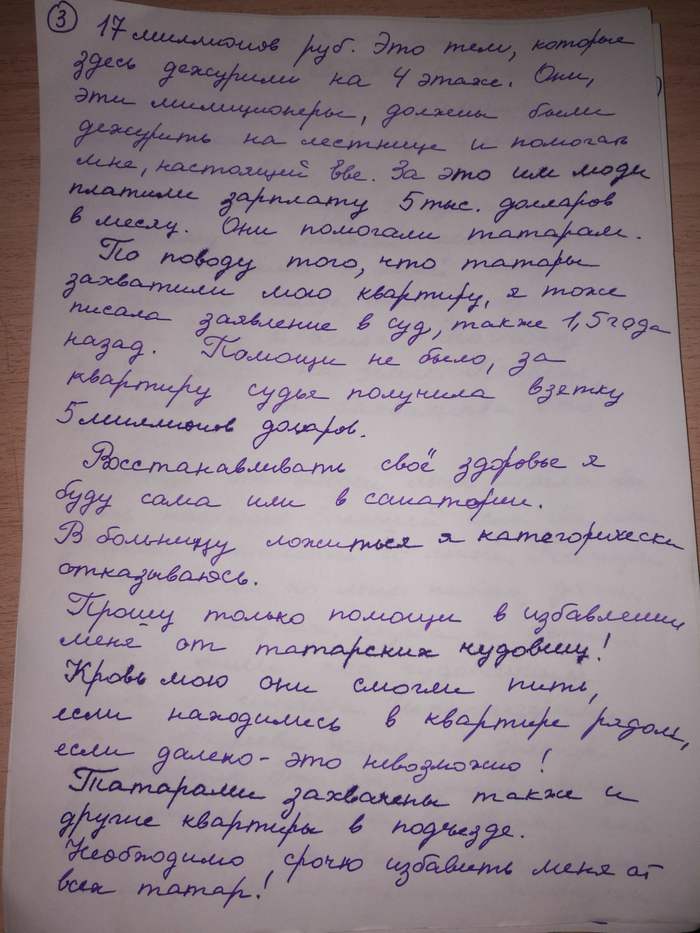 3
17 миллионов руб. Это тем, которые
здесь дежурили на 4 этаже. Они,
эти милиционеры, должны были
дежурить на лестнице и помогать
мне, настоящей Еве. За это им люди
платили зарплату 5 тыс. долларов
в месяц. Они помогали татарам.
По поводу того, что татары
захватили мою квартиру, я тоже
писала заявление в суд, также 1,5 года
назад. Помощи не было, за
квартиру судья получила взятку
5 миллионов доларов.
Восстанавливать своё здоровье я
буду сама или в санатории.
В больницу ложиться я категорически
отказываюсь.
Прошу только помощи в избавлении
меня от татарских чудовищ!
Кровь мою они смогли пить,
если находились в квартире рядом,
если далеко - это невозможно!
Татарами захвачены также и
другие квартиры в подъезде.
Необходимо, срочно избавить меня от
всех татар!